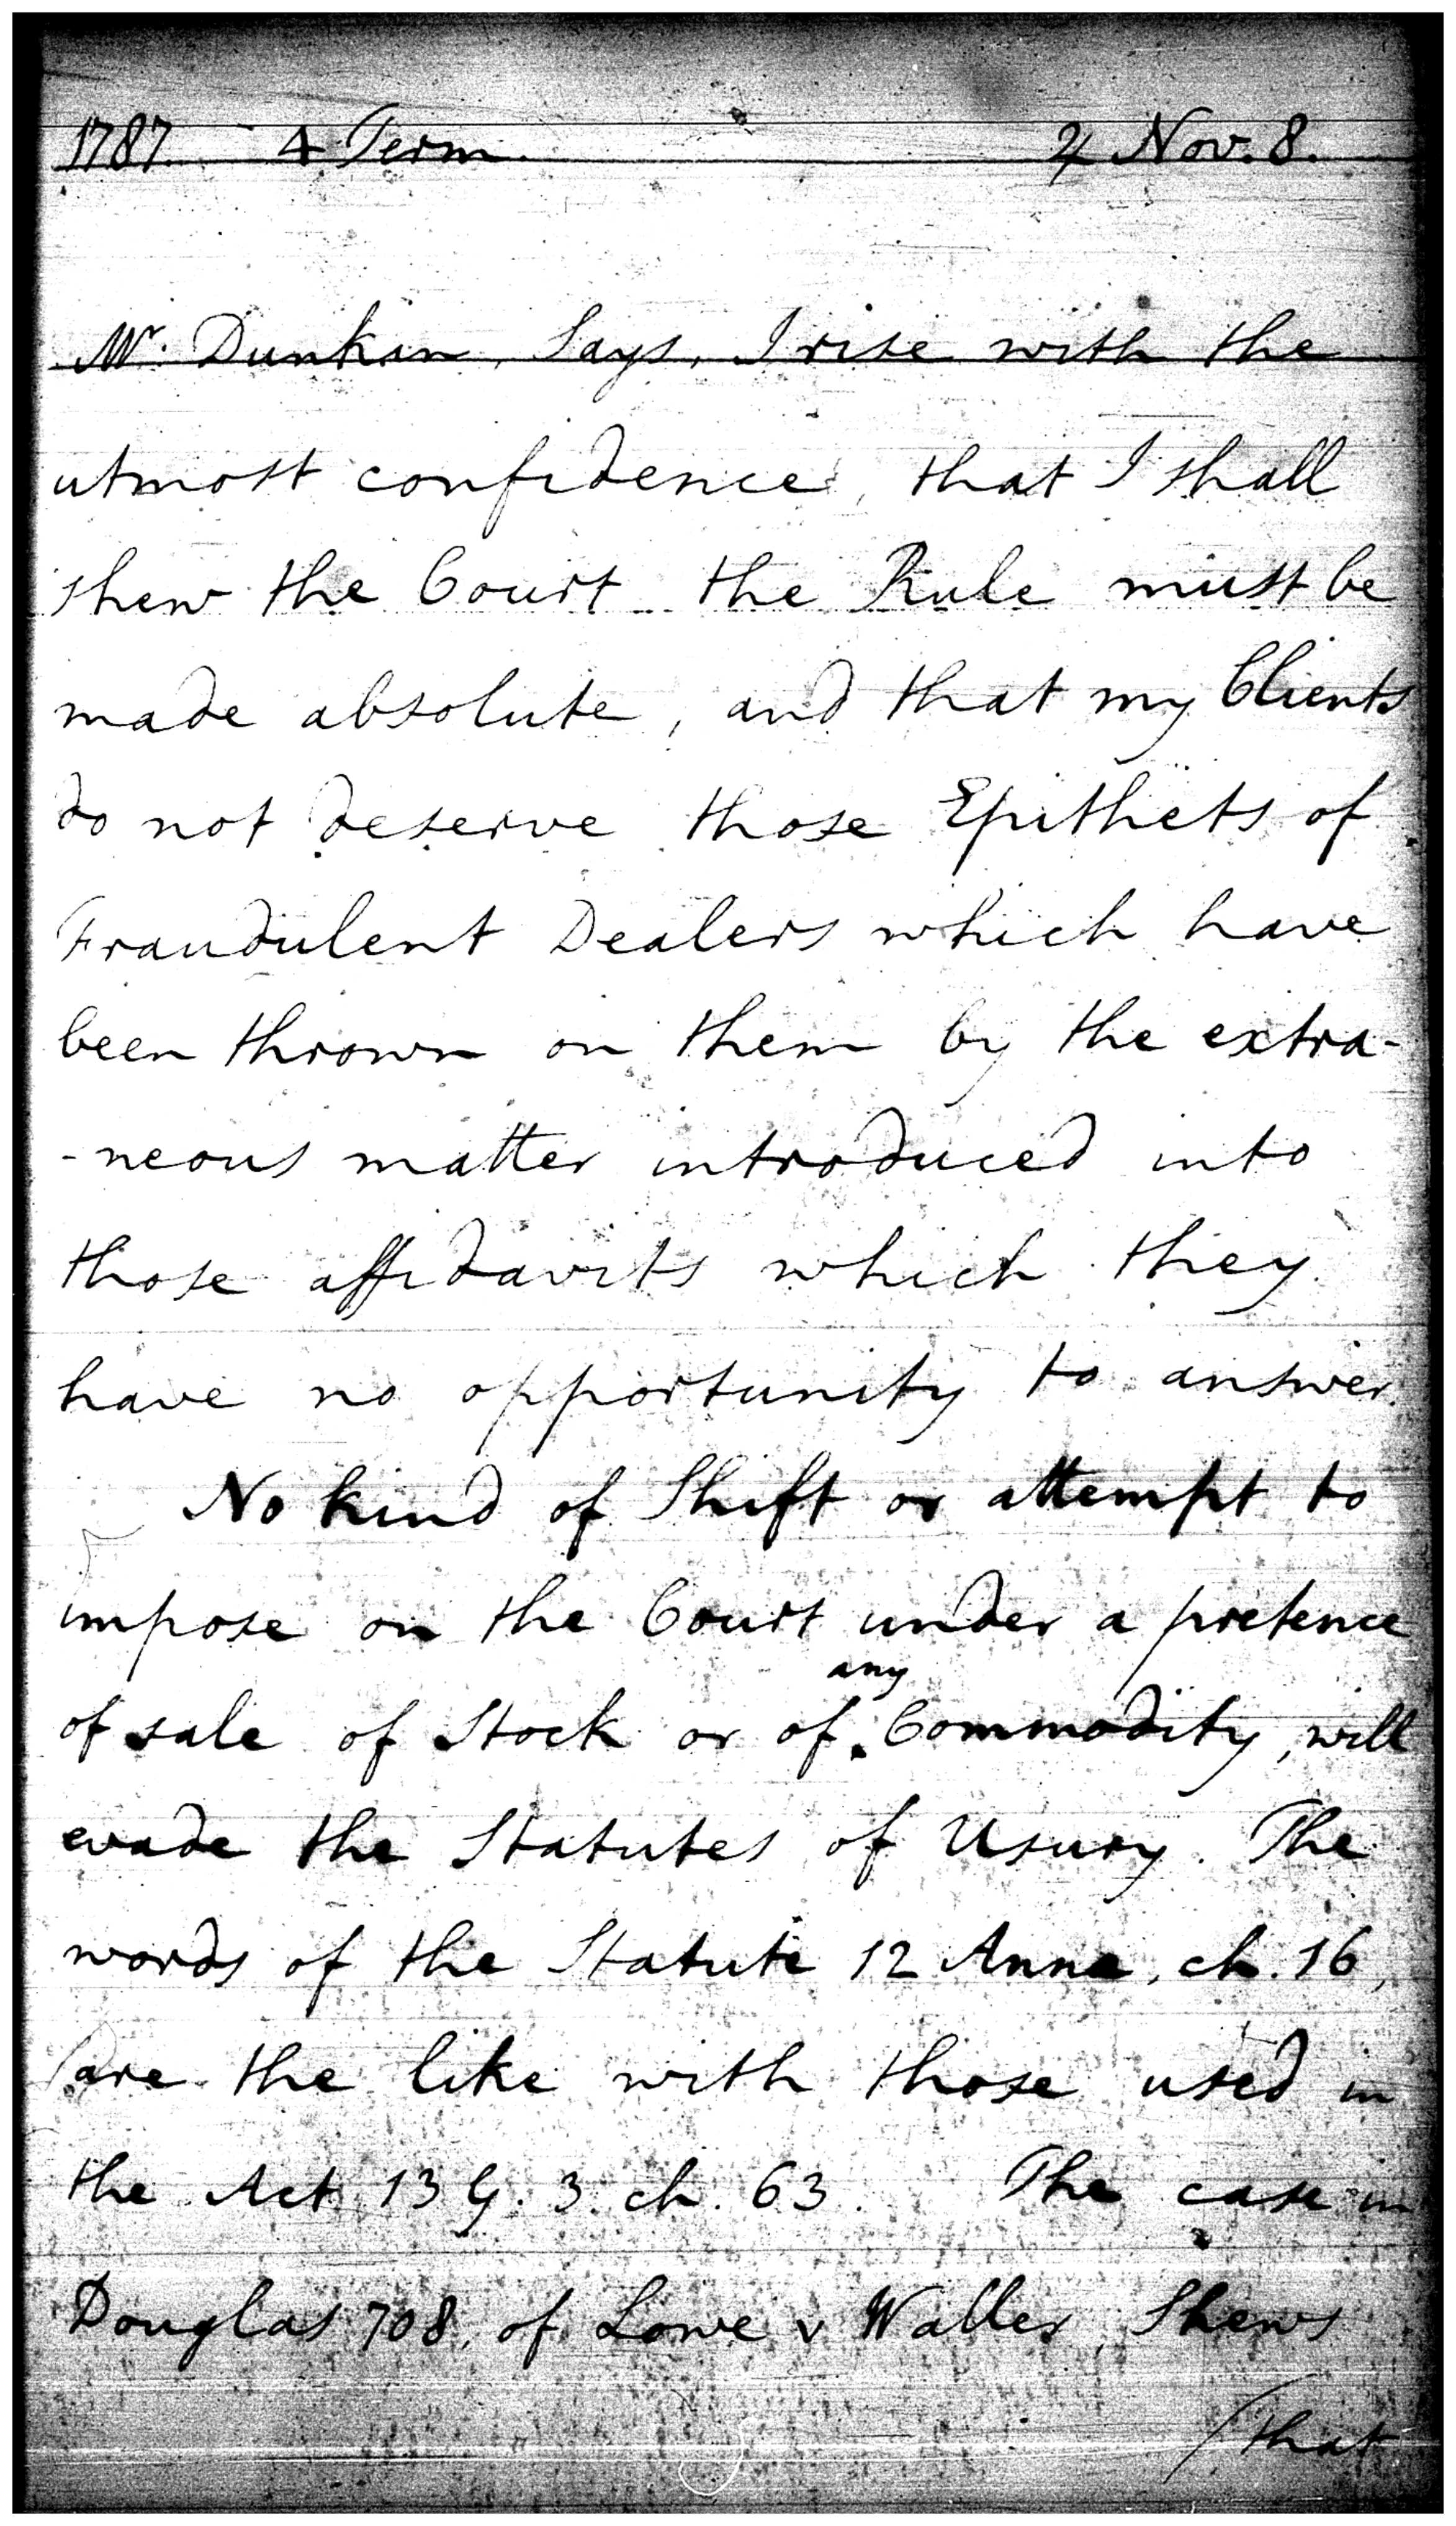 1787. 4 Term. ♃ Nov. 8.
Mr. Dunkin, Says, I rise with the
utmost confidence, that I shall
shew the Court the Rule must be
made absolute, and that my Clients
do not deserve those Epithets of
Fraudulent Dealers which have
been thrown on them by the extra-
-neous matter introduced into
those affidavits which they
have no opportunity to answer.
No kind of Shift or attempt to
impose on the Court under a pretence
any
of sale of Stock or of Commodity, will
evade the Statutes of Usury. The
words of the Statute 12 Anne, ch. 16,
are the like with those used in
the Act 13 G. 3. ch. 63. The case in
Douglas 708, of Lowe v Waller, Shews
/that